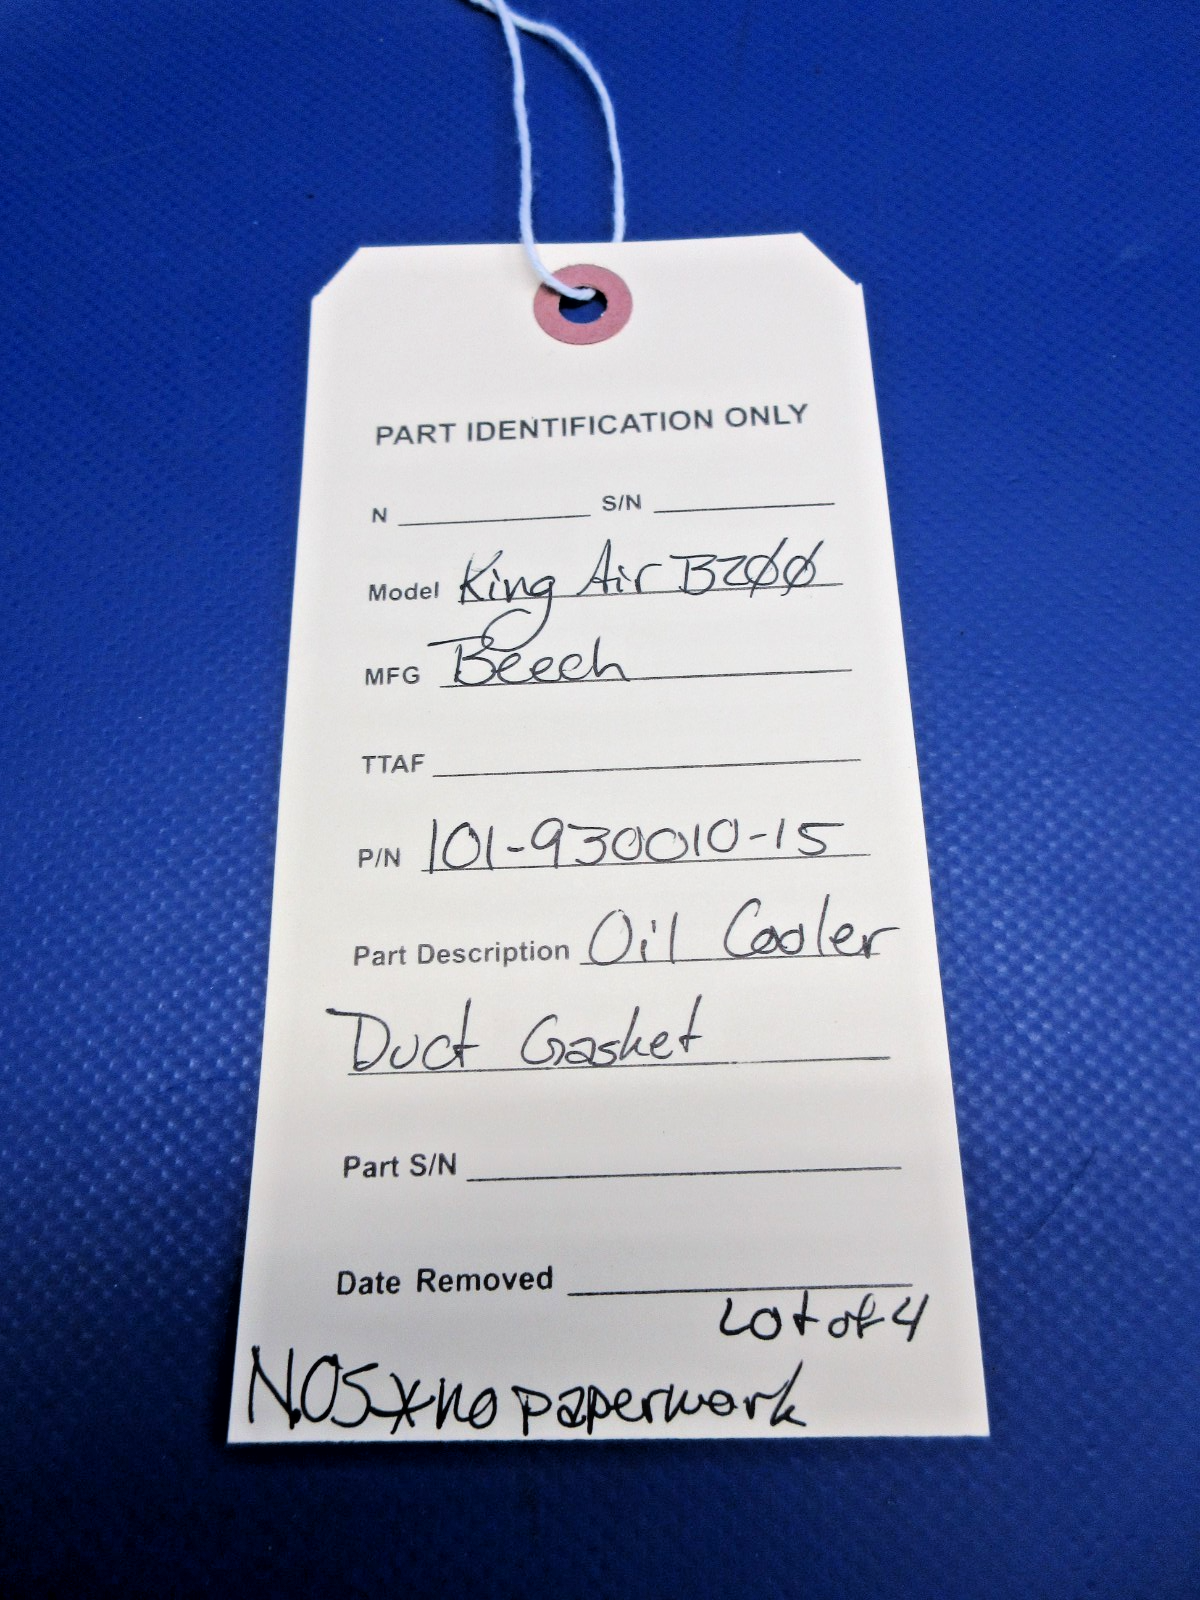 PART IDENTIFICATION ONLY
N S/N
Model King Air B200
MFG Beech
TTAF
P/N 101-930010-15
Part Description Oil Cooler
Duct Gasket
Part S/N
Date Removed
Lot of 4
NOS*no paperwork